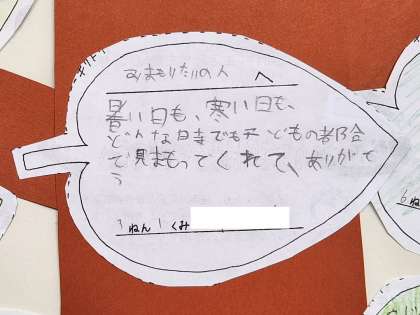 キリトリ
みまもりたいの人へ
暑い日も、寒い日も、
どんな日寺でも子どもの都合
で見まもってくれて、ありがと
う
3ねん1くみ
6ね